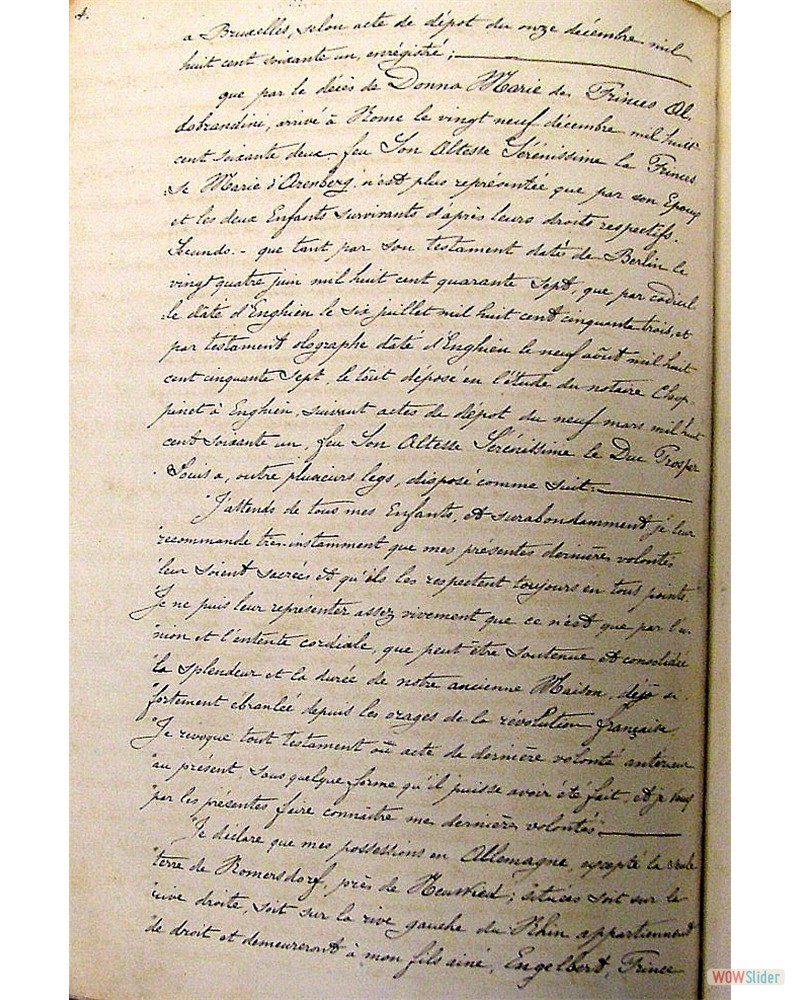 4.
a Bruxelles, selon acte de dépot du onze décembre mil
huit cent soixante un, enrégistré ;
que par le décès de Donna Marie des Princes Al-
dobrandini, arrivé à Rome le vingt neuf décembre mil huit
cent soixante deux, feu Son Altesse Sérénissime la Princes-
se Marie d'Arenberg, n'est plus représentée que par son Epoux
et les deux Enfants survivants d'après leurs droits respectifs.
Secundo.- que tant par son testament daté de Berlin le
vingt quatre juin mil huit cent quarante sept, que par codicil-
le daté d'Enghien le six juillet mil huit cent cinquante trois, et
par testament olographe daté d'Enghien le neuf août mil huit
cent cinquante sept, le tout déposé en l'étude du notaire Chop-
pinet à Enghien, suivant actes de dépot du neuf mars mil huit
cent soixante un, feu Son Altesse Sérénissime le Duc Prosper
Louis a, outre plusieurs legs, disposé comme suit.
"J'attends de tous mes Enfants, et surabondamment je leur
"recommande très-instamment que mes présentes dernières volontés
"leur soient sacrées et qu'ils les respectent toujours en tous points.
"Je ne puis leur représenter assez vivement que ce n'est que par l'u-
"nion et l'entente cordiale, que peut être soutenue et consolidée
"la splendeur et la durée de notre ancienne Maison, déjà si
"fortement ebranlée depuis les orages de la révolution française.
"Je révoque tout testament où acte de dernière volonté antérieur
"au présent sous quelque forme qu'il puisse avoir été fait, et je veux
"par les présentes faire connaître mes dernières volontés.
"Je déclare que mes possessions en Allemagne, excepté la seule
"terre de Romersdorf, près de Neuwied ; situées soit sur la
"rive droite, soit sur la rive gauche du Rhin appartiennent
"de droit et demeureront à mon fils ainé, Engelbert, Prince
WOWSlider